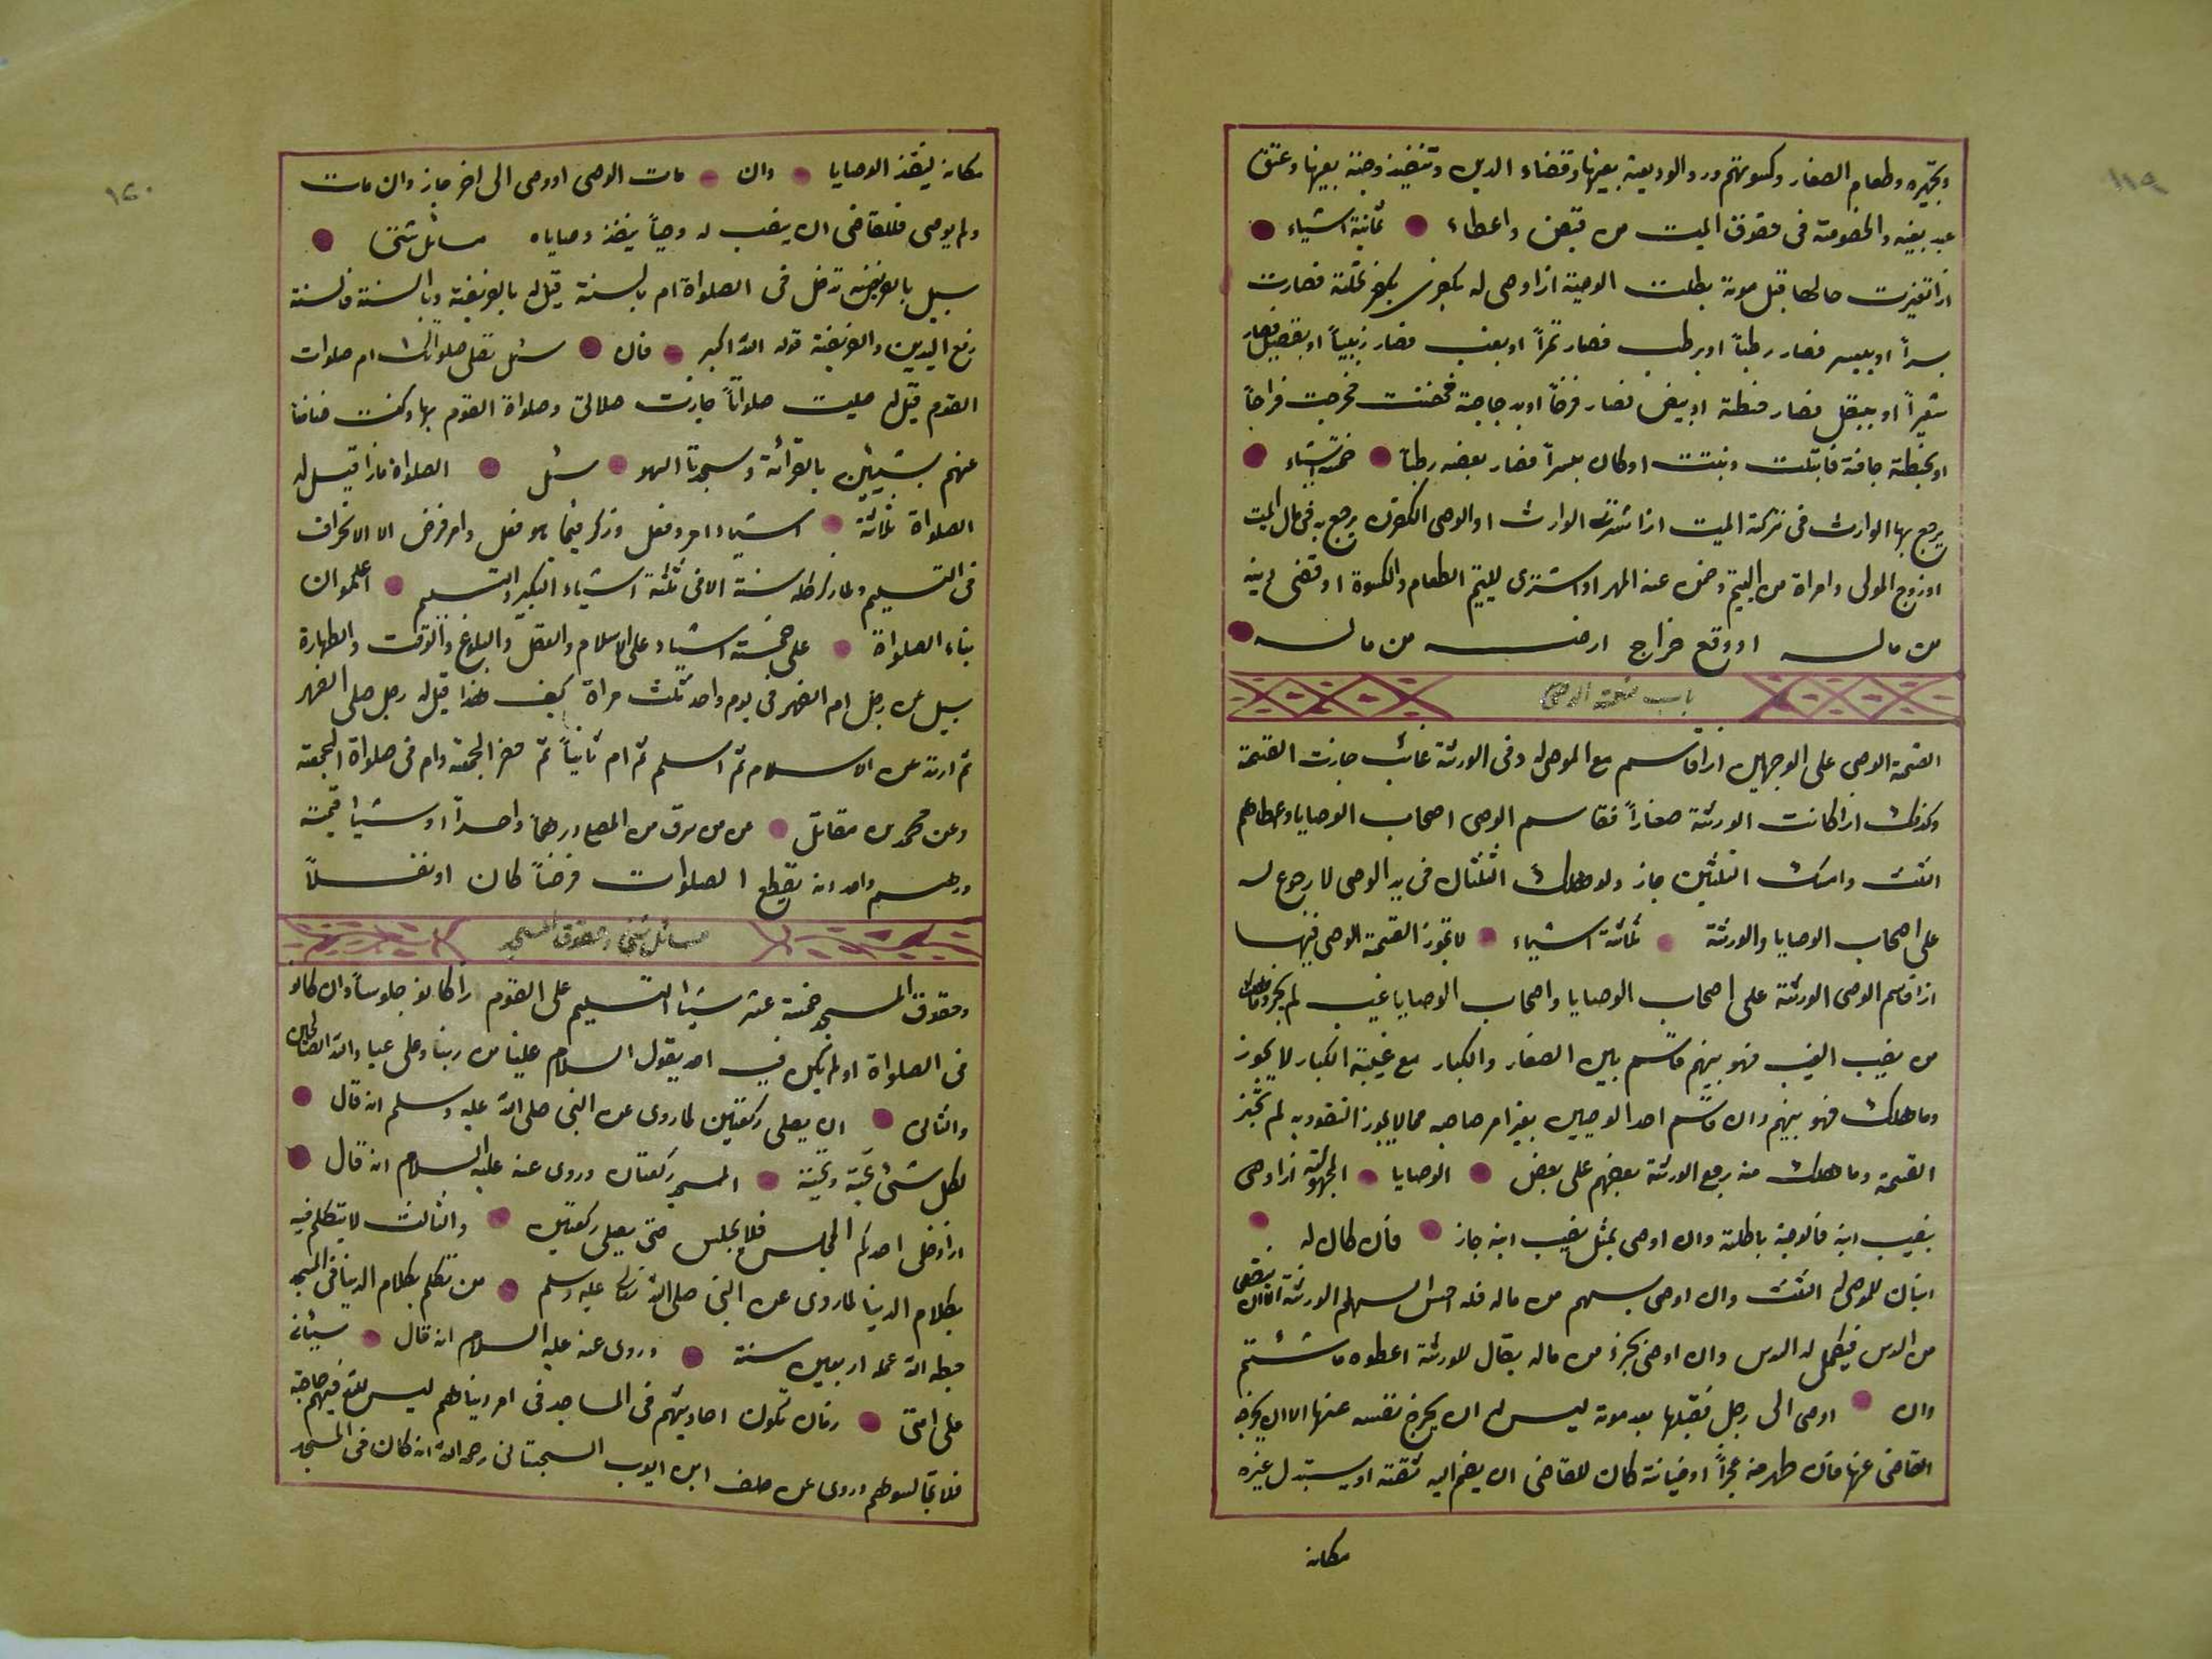 ١١٩
وتجهيزه وطعام الصغار وكسوتهم ورد الوديعة بعينها وقضاء الدين وتنفيذ وصية بعينها وعتق
عبد بعينه والخصومة فى حقوق الميت من قبض واعطاء ثمانية اشياء
اذا تغيرت حالها قبل موته بطلت الوصية اذا اوصى له بكفرى نخلة فصارت
بسراً او ببسر فصار رطباً او برطب فصار تمراً او بعنب فصار زبيباً او بقصيل فصار
شعيراً او ببقل فصار حنطة او بيض فصار فرخاً او بدجاجة فحضنت فخرجت فراخاً
او بحنطة جافة فابتلت ونبتت او كان بسراً فصار بعضه رطباً خمسة اشياء
يرجع بها الوارث فى تركة الميت اذا الوارث او الوصى الكفن يرجع به فى مال الميت
او زوج المولى وامراة من اليتيم وضمن عنه المهر او اشترى لليتيم الطعام والكسوة او قضى دينه
من ماله او وقع خراج ارضه من ماله
باب قسمة الوصى
القسمة الوصى على الوجهين اذا قاسم مع الموصى له وفى الورثة غائب جازت القسمة
وكذلك اذا كانت الورثة صغاراً فقاسم الوصى اصحاب الوصايا وعطاهم
الثلث وامسك الثلثين جاز ولو هلك الثلثان فى يد الوصى لا رجوع له
على اصحاب الوصايا والورثة ثلثة اشياء لا تجوز القسمة الوصى فيها
اذا قاسم الوصى الورثة على اصحاب الوصايا واصحاب الوصايا غيب لم يجز وما هلك
من نصيب الغيب فهو بينهم قاسم بين الصغار والكبار مع غيبة الكبار لا يجوز
وما هلك فهو بينهم وان قاسم احد الوصيين بغير امر صاحبه مما لا يجوز التفرد به لم تجز
القسمة وما هلك منه رجع الورثة بعضهم على بعض الوصايا المجهولة اذا اوصى
بنصيب ابنه فالوصية باطلة وان اوصى بمثل نصيب ابنه جاز فان كان له
ابنان للموصى له الثلث وان اوصى بسهم من ماله فله اخس السهام الورثة الا ان ينقص
من السدس فيكمل له السدس وان اوصى بجزء من ماله يقال للورثة اعطوه ما شئتم
وان اوصى الى رجل فقبلها بعد موته ليس له ان يخرج نفسه عنها الا ان يخرجه
القاضى عنها فان ظهر منه عجزاً او خيانة كان للقاضى ان يضم اليه ثقته او يستبدل غيره
مكانه
١٢٠
مكانه لينفذ الوصايا وان مات الوصى اووصى الى اخر جاز وان مات
ولم يوصى فللقاضى ان ينصب له وصياً ينفذ وصاياه مسائل شتى
سيل بالفريضة تدخل فى الصلواة ام بالسنة قيل له بالفريضة وبالسنة فالسنة
رفع اليدين والفريضة قوله الله اكبر فان سئل تصلى صلواتك ام صلوات
القوم قيل له صليت صلواتاً جازت صلاتى وصلواة القوم بها وكنت ضامنا
عنهم بشيئين بالقرائة وسجدتا السهو سئل الصلواة ماذا قيل له
الصلواة ثلثة اشياء امر وفعل وذكر فيما هو فعل وامر فرض الا الانحراف
فى التسليم وما ذكر كله سنة الا فى ثلثة اشياء التكبير والتسليم اعلموا ان
بناء الصلواة على خمسة اشياء على الاسلام والعقل والبلوغ والوقت والطهارة
سيل عن رجل ام الظهر فى يوم واحد ثلث مراة كيف هذا قيل له رجل صلى الظهر
ثم ارتد عن الاسلام ثم اسلم ثم ام ثانياً ثم حضر الجمعة وام فى صلواة الجمعة
وعن محمد بن مقاتل من من سرق من المصلى درهماً واحداً او شيئا قيمته
درهم واحد انه يقطع الصلوات فرضاً كان او نفلاً
مسائل شتى وحقوق المسجد
وحقوق المسجد خمسة عشر شيئا التسليم على القوم اذا كانو جلوساً وان كانو
فى الصلواة او لم يكن فيه احد يقول السلام علينا من ربنا وعلى عباد الله الصالحين
والثانى ان يصلى ركعتين لما روى عن النبى صلى الله عليه وسلم انه قال
لكل شئ تحية وتحية المسجد ركعتان وروى عنه عليه السلام انه قال
اذا دخل احدكم المجلس فلا يجلس حتى يصلى ركعتين والثالث لا يتكلم فيه
بكلام الدنيا لما روى عن النبى صلى الله تعالى عليه وسلم من تكلم بكلام الدنيا فى المسجد
حبط الله عمله اربعين سنة وروى عنه عليه السلام انه قال سيئاتى
على امتى زمان تكون احاديثهم فى المساجد فى امر ديناهم ليس لله فيهم حاجة
فلا تجالسوهم وروى عن خلف ابن ايوب السجستانى رحمه الله انه كان فى المسجد